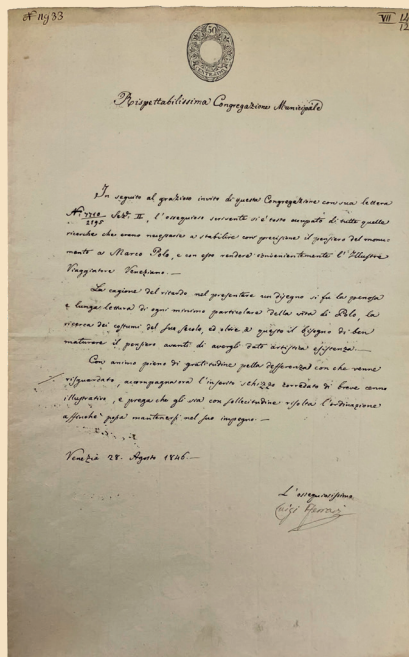 N° 11933
VII 14/12
50
CENTES
Rispettabilissima Congregazione Municipale
In seguito al grazioso invito di questa Congregazione con sua lettera
N° 7710/2195 Sez. II, l'ossequioso scrivente si è tosto occupato di tutte quelle
ricerche che erano necessarie a stabilire con precisione il pensiero del monu-
mento a Marco Polo, e con esso rendere convenientemente l'Illustre
Viaggiatore Veneziano.—
La cagione del ritardo nel presentare un disegno si fu la penosa
e lunga lettura di ogni minimo particolare della vita di Polo, la
ricerca dei costumi del suo secolo, ed oltre a questo il bisogno di ben
maturare il pensiero avanti di avergli dato artistica esistenza.—
Con animo pieno di gratitudine pella defferenza con che venne
risguardato, accompagna ora l'inserto schizzo corredato di breve cenno
illustrativo, e prega che gli sia con sollecitudine risolta l'ordinazione
affinché possa mantenersi nel suo impegno.—
Venezia 28. Agosto 1846.—
L'ossequiosissimo
Luigi Ferrari